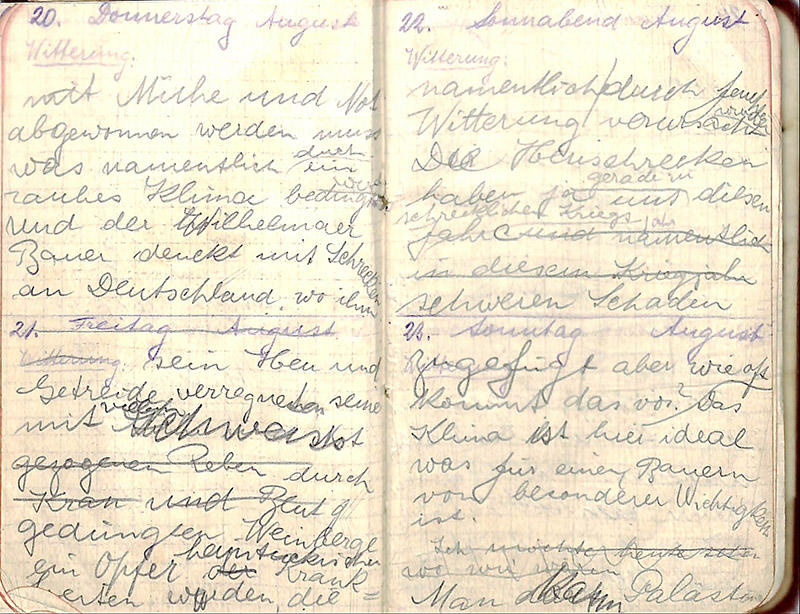 20. Donnerstag August
Witterung:
mit Mühe und Not
abgewonnen werden muss
was namentlich durch ein
rauhes Klima bedingt wird
und der Wilhelmaer
Bauer denckt mit Schrecken
an Deutschland, wo ihm
21. Freitag August
Witterung: sein Heu und
Getreide verregneten seine
mit vielen Schweiss
gezogenen Reben durch
Kran und Blut g
gedüngten Weinberge
ein Opfer der heimtückischen Krank=
heiten wurden, die
22. Sonnabend August
Witterung:
namentlich durch
Witterung verursacht wurde
Die Heuschrecken
haben ja gerade in uns diesen
schrecklichen Kriegsjahr
Jahr und namentlich
in diesem Kriegjahr
schweren Schaden
23. Sonntag August
zugefügt aber wie oft
kommt das vor? Das
Klima ist hier ideal
was für einen Bauern
von besonderer Wichtigkeit
ist.
Ich möchte heute
wo wir
Man kann Paläst